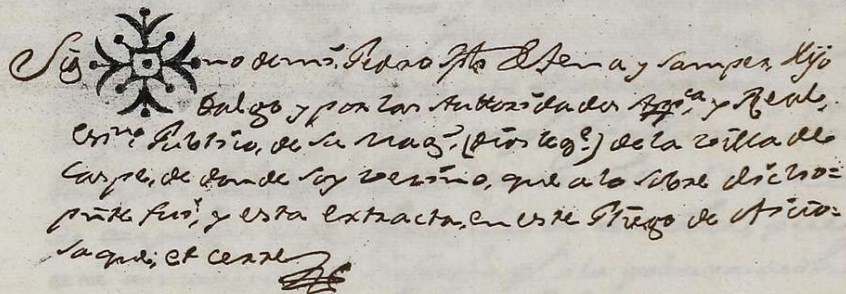 Sig no de mí, Pedro Jph de Sena y Samper, Hijo
dalgo y por las Auttoridades App.ca y Real,
ess.no Publico, de su Mag.d (Dios le g.e) de la villa de
Caspe, de donde soy vecino, que a lo sobre dicho=
pñte fui, y esta extracta, en este Pliego de Oficio=
saqué, et cerre